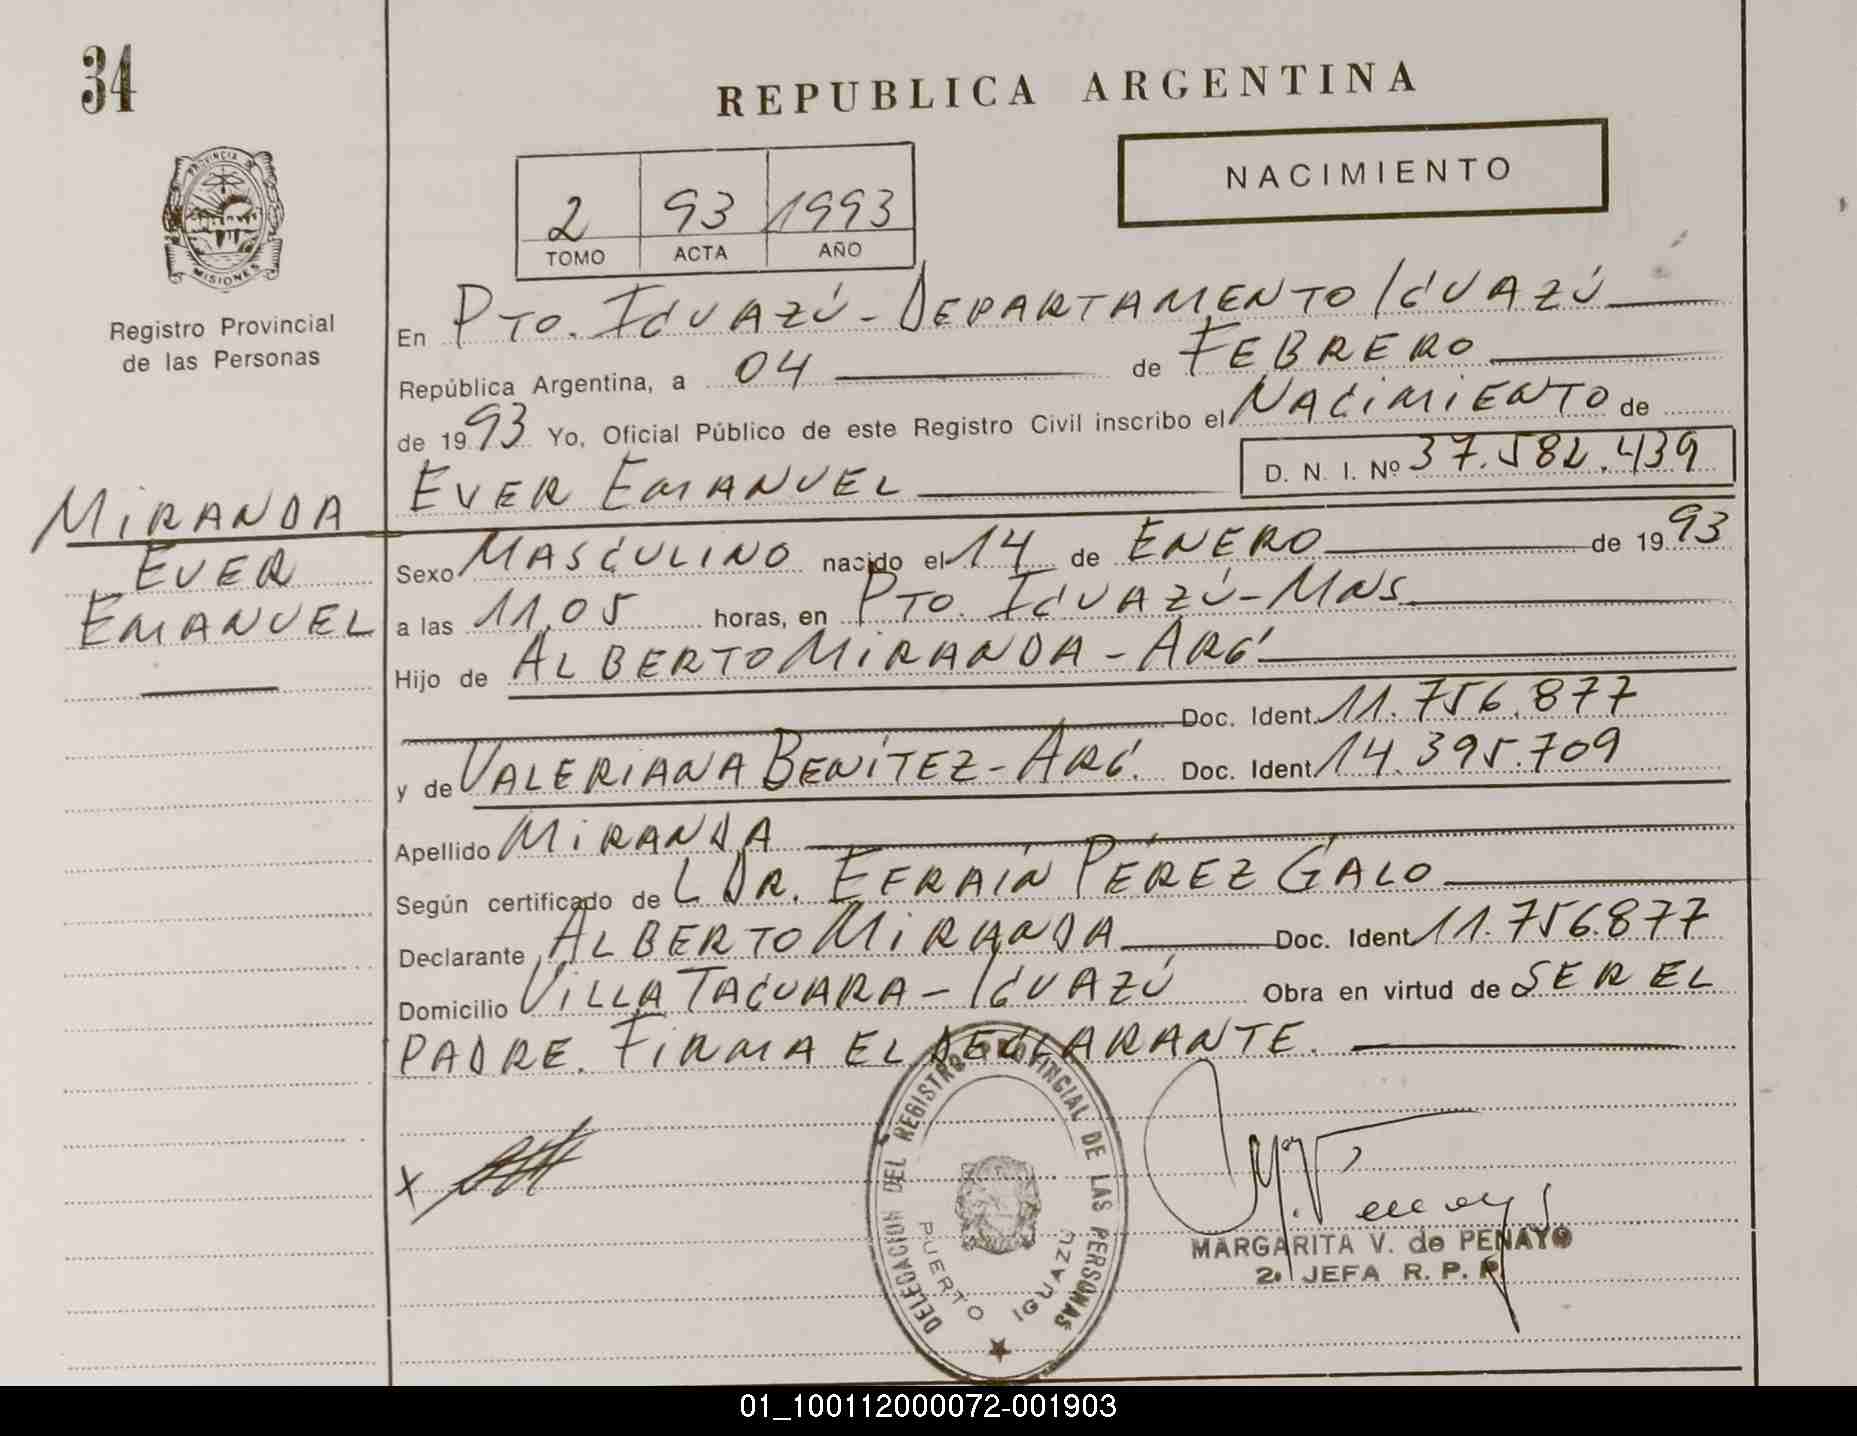 34
REPUBLICA ARGENTINA
NACIMIENTO
2 93 1993
TOMO ACTA AÑO
PROVINCIA DE
MISIONES
Registro Provincial
de las Personas
En Pto. Iguazú - Departamento Iguazú
República Argentina, a 04 de Febrero
de 1993 Yo, Oficial Público de este Registro Civil inscribo el Nacimiento de
Ever Emanuel D. N. I. Nº 37.582.439
Miranda
Ever
Emanuel
Sexo Masculino nacido el 14 de Enero de 1993
a las 11.05 horas, en Pto. Iguazú - Mns.
Hijo de Alberto Miranda - Arg.
Doc. Ident. 11.756.877
y de Valeriana Benítez - Arg. Doc. Ident. 14.395.709
Apellido Miranda
Según certificado de L Dr. Efraín Pérez Galo
Declarante Alberto Miranda Doc. Ident. 11.756.877
Domicilio Villa Tacuara - Iguazú Obra en virtud de ser el
padre. Firma el declarante.
DELEGACION DEL REGISTRO PROVINCIAL DE LAS PERSONAS
PUERTO IGUAZU
X
MARGARITA V. de PENAYO
2. JEFA R. P. P.
01_100112000072-001903